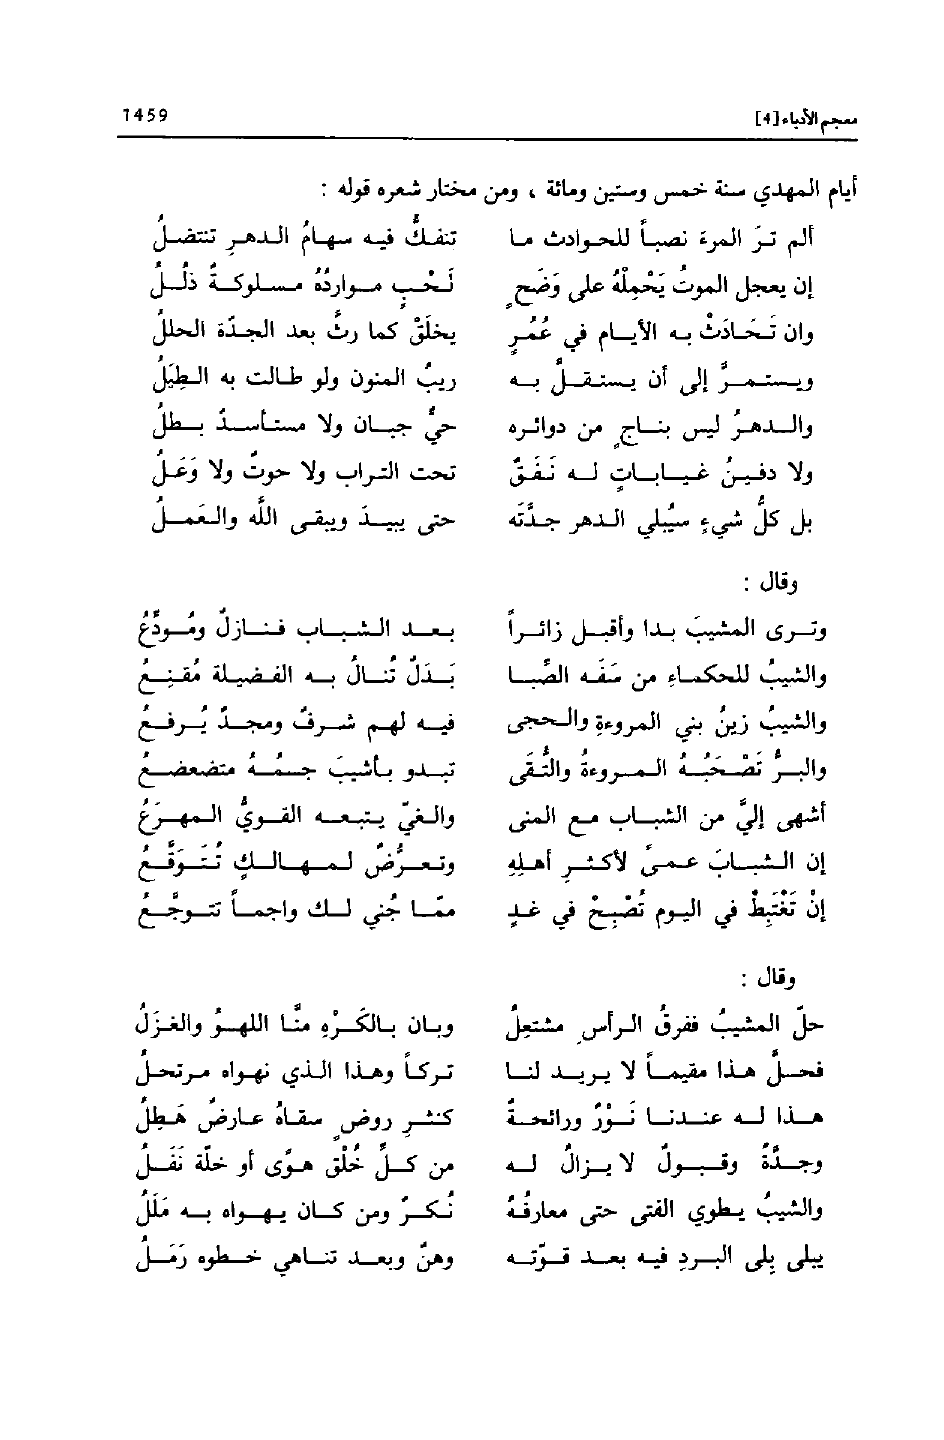 معجم الأدباء [4] 1459
أيام المهدي سنة خمس وستين ومائة ، ومن مختار شعره قوله :
ألم ترَ المرءَ نصباً للحوادث ما تنفكُّ فيه سهامُ الدهرِ تنتضلُ
إن يعجلِ الموتُ يَحْمِلْهُ على وَضَحٍ لَحْبٍ مواردُهُ مسلوكةٌ ذُلُلُ
وان تَمَادَتْ به الأيام في عُمُرٍ يخلَقْ كما رثَّ بعد الجدَّة الحللُ
ويستمرُّ إلى أن يستقلَّ به ريبُ المنون ولو طالت به الطِّيَلُ
والدهرُ ليس بناجٍ من دوائره حيٌّ جبان ولا مستأسدٌ بطلُ
ولا دفينُ غياباتٍ له نَفَقٌ تحت التراب ولا حوتٌ ولا وَعَلُ
بل كلُّ شيءٍ سيُبلي الدهر جدَّته حتى يبيدَ ويبقى اللهُ والعَمَلُ
وقال :
وترى المشيبَ بدا وأقبل زائراً بعد الشباب فنازلٌ ومُودِّعُ
والشيبُ للحكماءِ من سَفَهِ الصِّبا بَدَلٌ تُنالُ به الفضيلة مُقنِعُ
والشيبُ زينُ بني المروءة والحجى فيه لهم شرفٌ ومجدٌ يُرفعُ
والبرُّ تَصْحَبُهُ المروءةُ والتُّقَى تبدو بأشيبَ جسمُهُ متضعضعُ
أشهى إليَّ من الشباب مع المنى والغيّ يتبعه القويُّ المهرعُ
إن الشبابَ عمىً لأكثر أهلهِ وتعرُّضٌ لمهالكٍ تُتَوَقَّعُ
إنْ تَغْتَبِطْ في اليوم تُصْبِحْ في غدٍ ممَّا جُني لك واجماً تتوجَّعُ
وقال :
حلَّ المشيبُ ففرقُ الرأسِ مشتعلُ وبان بالكُرْهِ منَّا اللهوُ والغزلُ
فحلَّ هذا مقيماً لا يريد لنا تركاً وهذا الذي نهواه مرتحلُ
هذا له عندنا نَوْرٌ ورائحةٌ كنشرِ روضٍ سقاهُ عارضٌ هَطِلُ
وجدَّةٌ وقبولٌ لا يزالُ له من كلِّ خُلْقٍ هوًى أو خلَّة نَفَلُ
والشيبُ يطوي الفتى حتى معارفُهُ نُكرٌ ومن كان يهواه به مَلَلُ
يبلى بِلى البردِ فيه بعد قوّته وهنٌ وبعد تناهي خطوه رَمَلُ